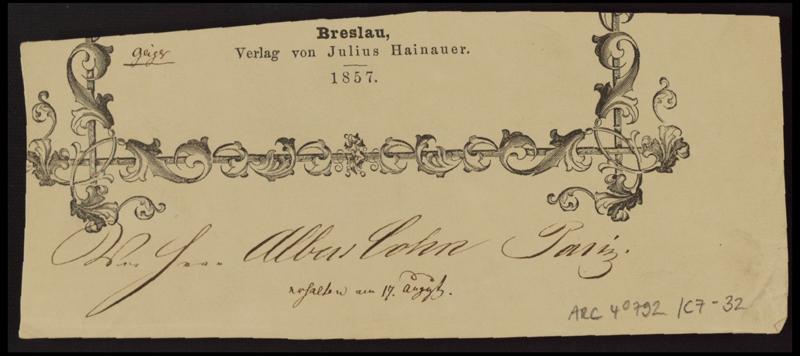 Breslau,
Geiger
Verlag von Julius Hainauer.
1857.
Herrn Albert Cohn Paris.
erhalten am 17. August.
ARC 4° 792 /C7-32